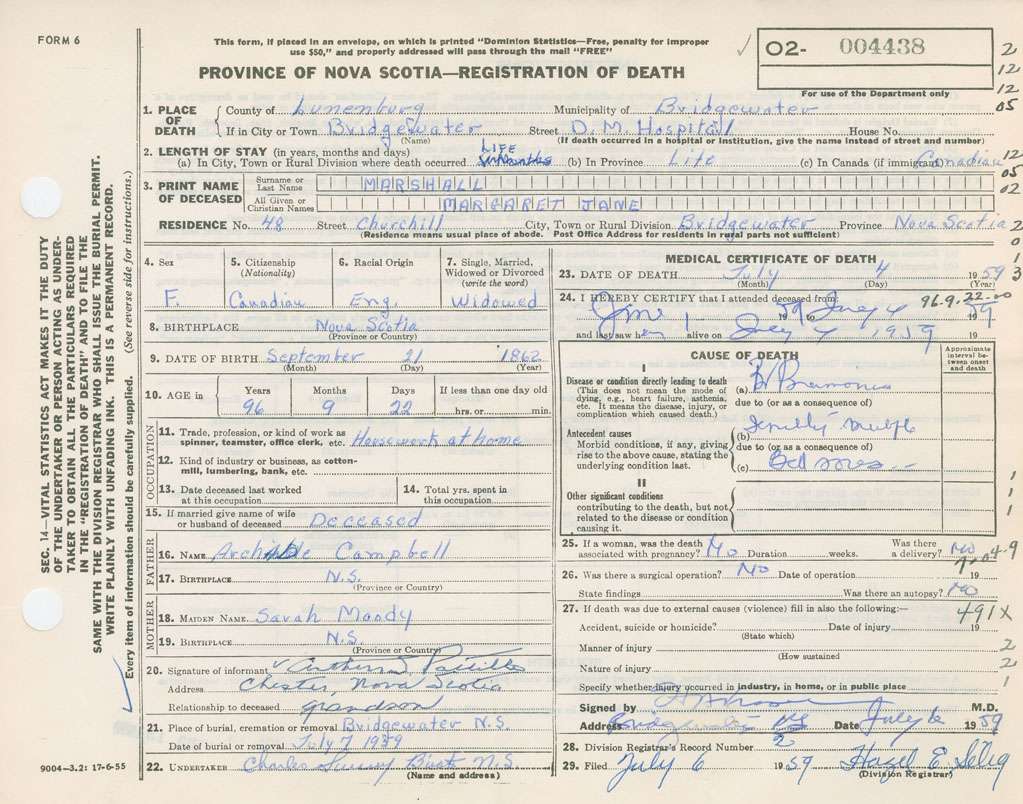 FORM 6
This form, if placed in an envelope, on which is printed "Dominion Statistics—Free, penalty for improper
use $50," and properly addressed will pass through the mail "FREE"
✓ O2- 004438
For use of the Department only
PROVINCE OF NOVA SCOTIA—REGISTRATION OF DEATH
2
12
12
05
12
05
02
2
0
1
3
1. PLACE OF DEATH
County of Lunenburg Municipality of Bridgewater
If in City or Town Bridgewater Street D. M. Hospital House No.
(Name) (If death occurred in a hospital or institution, give the name instead of street and number)
2. LENGTH OF STAY (in years, months and days)
LIFE
(a) In City, Town or Rural Division where death occurred (b) In Province Life (c) In Canada (if immigrant) Canadian
3. PRINT NAME OF DECEASED
Surname or Last Name MARSHALL
All Given or Christian Names MARGARET JANE
RESIDENCE No. 48 Street Churchill City, Town or Rural Division Bridgewater Province Nova Scotia
(Residence means usual place of abode. Post Office Address for residents in rural parts not sufficient)
4. Sex
F.
5. Citizenship
(Nationality)
Canadian
6. Racial Origin
Eng.
7. Single, Married, Widowed or Divorced
(write the word)
Widowed
8. BIRTHPLACE Nova Scotia
(Province or Country)
9. DATE OF BIRTH September 21 1862
(Month) (Day) (Year)
10. AGE in
Years Months Days If less than one day old
96 9 22 hrs. or min.
OCCUPATION
11. Trade, profession, or kind of work as
spinner, teamster, office clerk, etc. Housework at home
12. Kind of industry or business, as cotton-
mill, lumbering, bank, etc.
13. Date deceased last worked
at this occupation
14. Total yrs. spent in
this occupation
15. If married give name of wife
or husband of deceased Deceased
FATHER
16. NAME Campbell
17. BIRTHPLACE N.S.
(Province or Country)
MOTHER
18. MAIDEN NAME Sarah Moody
19. BIRTHPLACE N.S.
(Province or Country)
20. Signature of informant
Address Chester, Nova Scotia
Relationship to deceased grandson
21. Place of burial, cremation or removal Bridgewater N.S.
Date of burial or removal July 7 1959
22. UNDERTAKER Charles N.S.
(Name and address)
MEDICAL CERTIFICATE OF DEATH
23. DATE OF DEATH July 4 1959
(Month) (Day) (Year)
24. I HEREBY CERTIFY that I attended deceased from:
96-9-22-00
June 1 1959 July 4 1959
and last saw her alive on July 4 1959
CAUSE OF DEATH
Approximate interval between onset and death
I
Disease or condition directly leading to death
(This does not mean the mode of
dying, e.g., heart failure, asthenia,
etc. It means the disease, injury, or
complication which caused death.)
(a)
due to (or as a consequence of)
Antecedent causes
Morbid conditions, if any, giving
rise to the above cause, stating the
underlying condition last.
(b)
due to (or as a consequence of)
(c) Bed sores
II
Other significant conditions
contributing to the death, but not
related to the disease or condition
causing it.
1
1
1
25. If a woman, was the death
associated with pregnancy? No Duration weeks. Was there
a delivery? No
26. Was there a surgical operation? No Date of operation 19
State findings Was there an autopsy? No
27. If death was due to external causes (violence) fill in also the following:—
491X
Accident, suicide or homicide? Date of injury 19
(State which)
Manner of injury 2
(How sustained)
Nature of injury 2
Specify whether injury occurred in industry, in home, or in public place 1
Signed by M.D.
Address Bridgewater NS Date July 6 1959
28. Division Registrar's Record Number 2
29. Filed July 6 1959 Hazel E. Selig
(Division Registrar)
SEC. 14—VITAL STATISTICS ACT MAKES IT THE DUTY
OF THE UNDERTAKER OR PERSON ACTING AS UNDER-
TAKER TO OBTAIN ALL THE PARTICULARS REQUIRED
IN THE "REGISTRATION OF DEATH" AND TO FILE THE
SAME WITH THE DIVISION REGISTRAR WHO SHALL ISSUE THE BURIAL PERMIT.
WRITE PLAINLY WITH UNFADING INK. THIS IS A PERMANENT RECORD.
Every item of information should be carefully supplied. (See reverse side for instructions.)
9004-3.2: 17-6-55